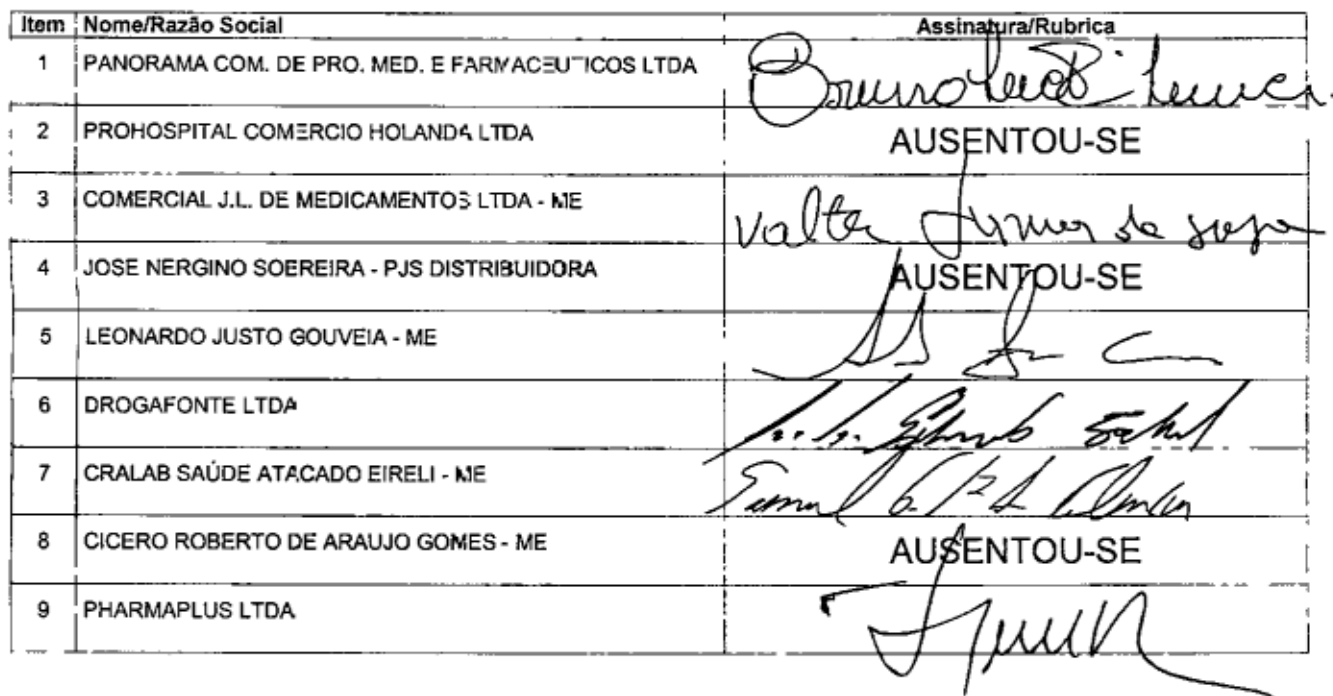 Item Nome/Razão Social Assinatura/Rubrica
1 PANORAMA COM. DE PRO. MED. E FARMACEUTICOS LTDA
2 PROHOSPITAL COMERCIO HOLANDA LTDA AUSENTOU-SE
3 COMERCIAL J.L. DE MEDICAMENTOS LTDA - ME Valter Junior de
4 JOSE NERGINO SOEREIRA - PJS DISTRIBUIDORA AUSENTOU-SE
5 LEONARDO JUSTO GOUVEIA - ME
6 DROGAFONTE LTDA
7 CRALAB SAÚDE ATACADO EIRELI - ME
8 CICERO ROBERTO DE ARAUJO GOMES - ME AUSENTOU-SE
9 PHARMAPLUS LTDA